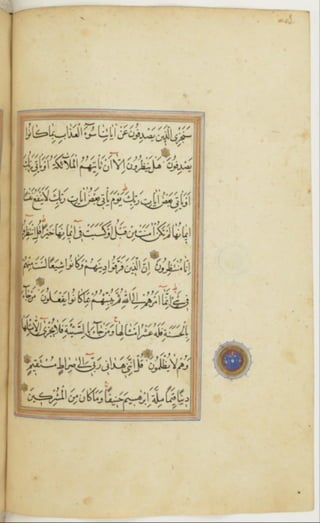 سَنَجْزِى الَّذِينَ يَصْدِفُونَ عَنْ اٰيَاتِنَا سُوٓءَ الْعَذَابِ بِمَا كَانُوا
يَصْدِفُونَ هَلْ يَنْظُرُونَ اِلَّٓا اَنْ تَاْتِيَهُمُ الْمَلٰٓئِكَةُ اَوْ يَاْتِىَ رَبُّكَ
اَوْ يَاْتِىَ بَعْضُ اٰيَاتِ رَبِّكَ يَوْمَ يَاْتِى بَعْضُ اٰيَاتِ رَبِّكَ لَا يَنْفَعُ نَفْسًا
اِيمَانُهَا لَمْ تَكُنْ اٰمَنَتْ مِنْ قَبْلُ اَوْ كَسَبَتْ فِٓى اِيمَانِهَا خَيْرًا قُلِ انْتَظِرُوا
اِنَّا مُنْتَظِرُونَ اِنَّ الَّذِينَ فَرَّقُوا دِينَهُمْ وَكَانُوا شِيَعًا لَسْتَ مِنْهُمْ
فِى شَىْءٍ اِنَّمَٓا اَمْرُهُمْ اِلَى اللّٰهِ ثُمَّ يُنَبِّئُهُمْ بِمَا كَانُوا يَفْعَلُونَ مَنْ جَٓاءَ
بِالْحَسَنَةِ فَلَهُ عَشْرُ اَمْثَالِهَا وَمَنْ جَٓاءَ بِالسَّيِّئَةِ فَلَا يُجْزٰٓى اِلَّا مِثْلَهَا
وَهُمْ لَا يُظْلَمُونَ قُلْ اِنَّنِى هَدٰينِى رَبِّٓى اِلٰى صِرَاطٍ مُسْتَقِيمٍ
دِينًا قِيَمًا مِلَّةَ اِبْرٰهِيمَ حَنِيفًا وَمَا كَانَ مِنَ الْمُشْرِكِينَ